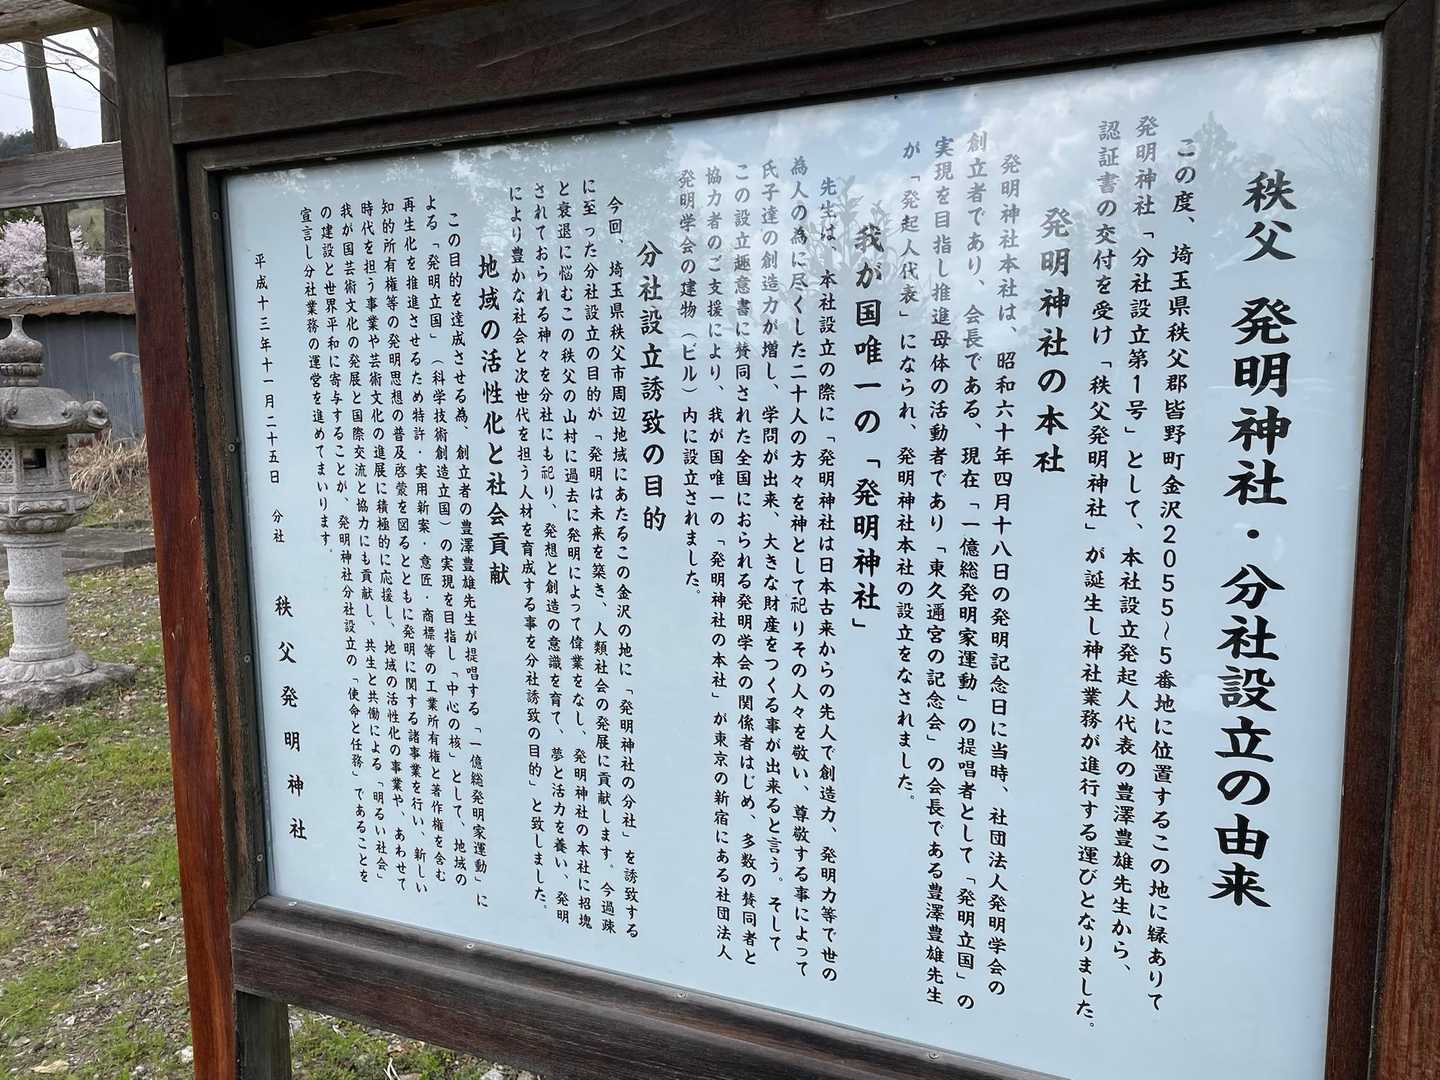 秩父 発明神社・分社設立の由来
この度、埼玉県秩父郡皆野町金沢2055〜5番地に位置するこの地に縁ありて
発明神社「分社設立第1号」として、本社設立発起人代表の豊澤豊雄先生から、
認証書の交付を受け「秩父発明神社」が誕生し神社業務が進行する運びとなりました。
発明神社の本社
発明神社本社は、昭和六十年四月十八日の発明記念日に当時、社団法人発明学会の
創立者であり、会長である、現在「一億総発明家運動」の提唱者として「発明立国」の
実現を目指し推進母体の活動者であり「東久邇宮の記念会」の会長である豊澤豊雄先生
が「発起人代表」になられ、発明神社本社の設立をなされました。
我が国唯一の「発明神社」
先生は、本社設立の際に「発明神社は日本古来からの先人で創造力、発明力等で世の
為人の為に尽くした二十人の方々を神として祀りその人々を敬い、尊敬する事によって
氏子達の創造力が増し、学問が出来、大きな財産をつくる事が出来ると言う。そして
この設立趣意書に賛同された全国におられる発明学会の関係者はじめ、多数の賛同者と
協力者のご支援により、我が国唯一の「発明神社の本社」が東京の新宿にある社団法人
発明学会の建物（ビル）内に設立されました。
分社設立誘致の目的
今回、埼玉県秩父市周辺地域にあたるこの金沢の地に「発明神社の分社」を誘致する
に至った分社設立の目的が「発明は未来を築き、人類社会の発展に貢献します。今過疎
と衰退に悩むこの秩父の山村に過去に発明によって偉業をなし、発明神社の本社に招塊
されておられる神々を分社にも祀り、発想と創造の意識を育て、夢と活力を養い、発明
により豊かな社会と次世代を担う人材を育成する事を分社誘致の目的」と致しました。
地域の活性化と社会貢献
この目的を達成させる為、創立者の豊澤豊雄先生が提唱する「一億総発明家運動」に
よる「発明立国」（科学技術創造立国）の実現を目指し「中心の核」として、地域の
再生化を推進させるため特許・実用新案・意匠・商標等の工業所有権と著作権を含む
知的所有権等の発明思想の普及啓蒙を図るとともに発明に関する諸事業を行い、新しい
時代を担う事業や芸術文化の進展に積極的に応援し、地域の活性化の事業や、あわせて
我が国芸術文化の発展と国際交流と協力にも貢献し、共生と共働による「明るい社会」
の建設と世界平和に寄与することが、発明神社分社設立の「使命と任務」であることを
宣言し分社業務の運営を進めてまいります。
平成十三年十一月二十五日 分社 秩父発明神社